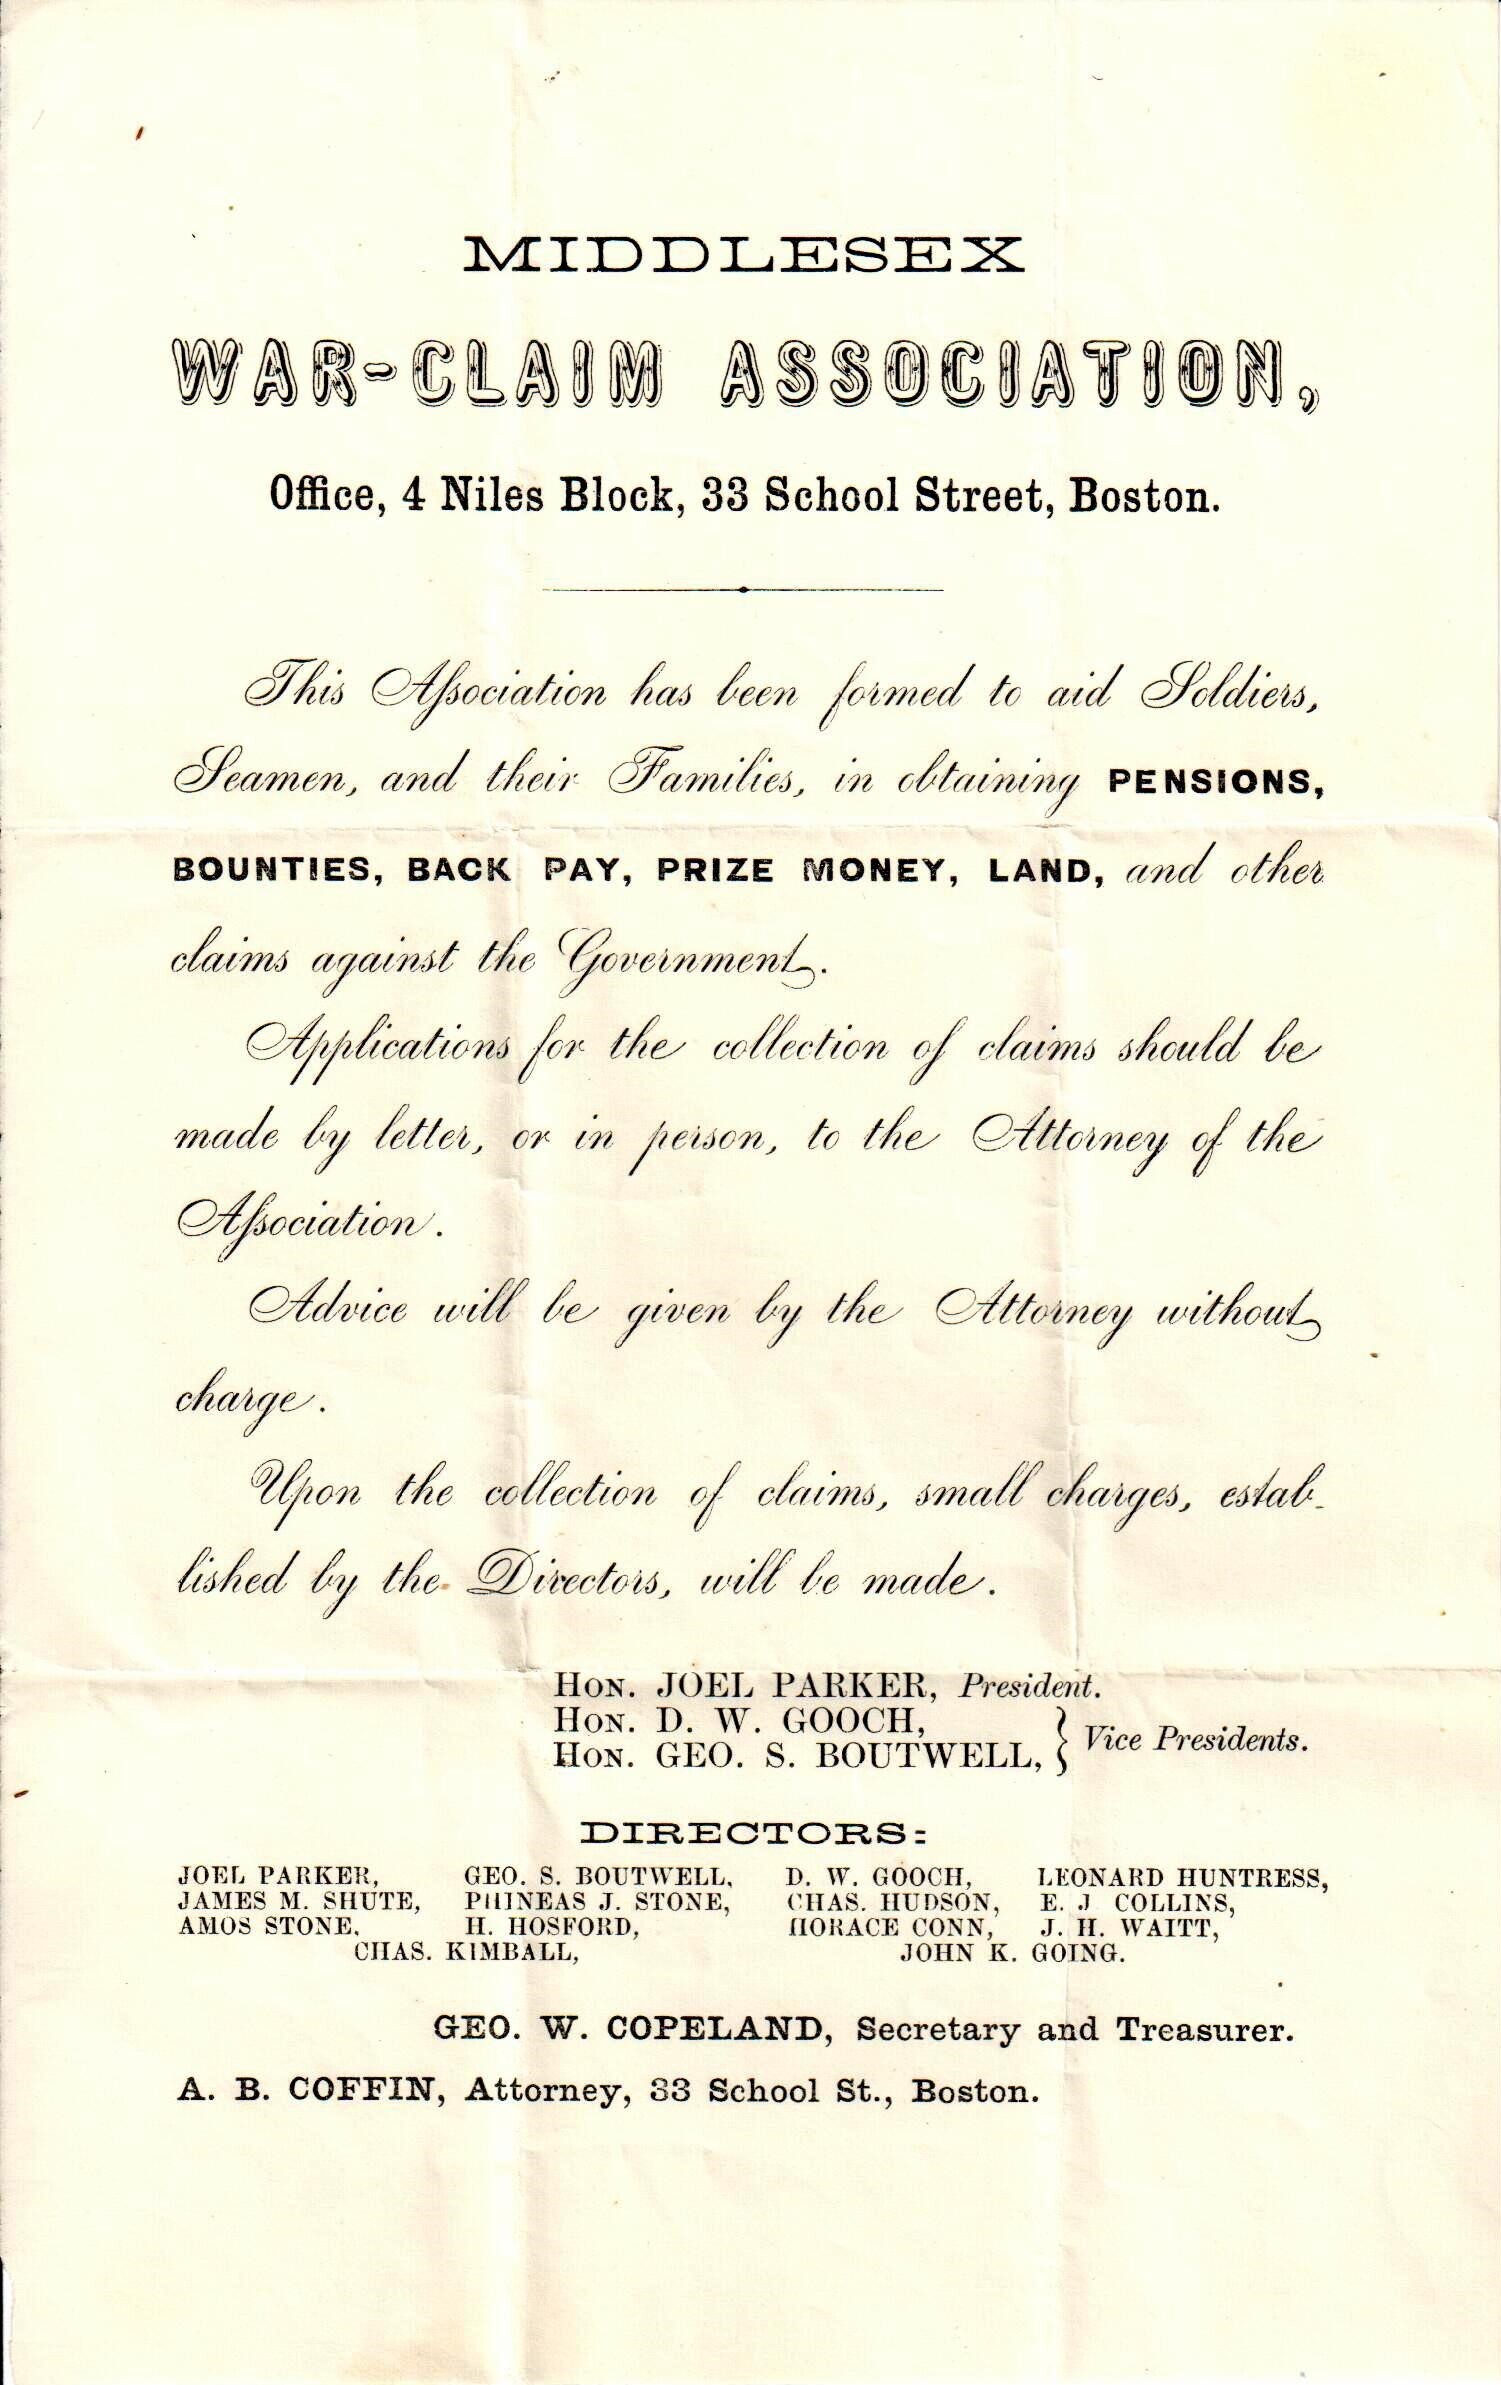 MIDDLESEX
WAR-CLAIM ASSOCIATION,
Office, 4 Niles Block, 33 School Street, Boston.
This Aſsociation has been formed to aid Soldiers,
Seamen, and their Families, in obtaining PENSIONS,
BOUNTIES, BACK PAY, PRIZE MONEY, LAND, and other
claims against the Government.
Applications for the collection of claims should be
made by letter, or in person, to the Attorney of the
Aſsociation.
Advice will be given by the Attorney without
charge.
Upon the collection of claims, small charges, estab-
lished by the Directors, will be made.
Hon. JOEL PARKER, President.
Hon. D. W. GOOCH,
Hon. GEO. S. BOUTWELL, } Vice Presidents.
DIRECTORS:
JOEL PARKER, GEO. S. BOUTWELL, D. W. GOOCH, LEONARD HUNTRESS,
JAMES M. SHUTE, PHINEAS J. STONE, CHAS. HUDSON, E. J COLLINS,
AMOS STONE, H. HOSFORD, HORACE CONN, J. H. WAITT,
CHAS. KIMBALL, JOHN K. GOING.
GEO. W. COPELAND, Secretary and Treasurer.
A. B. COFFIN, Attorney, 33 School St., Boston.